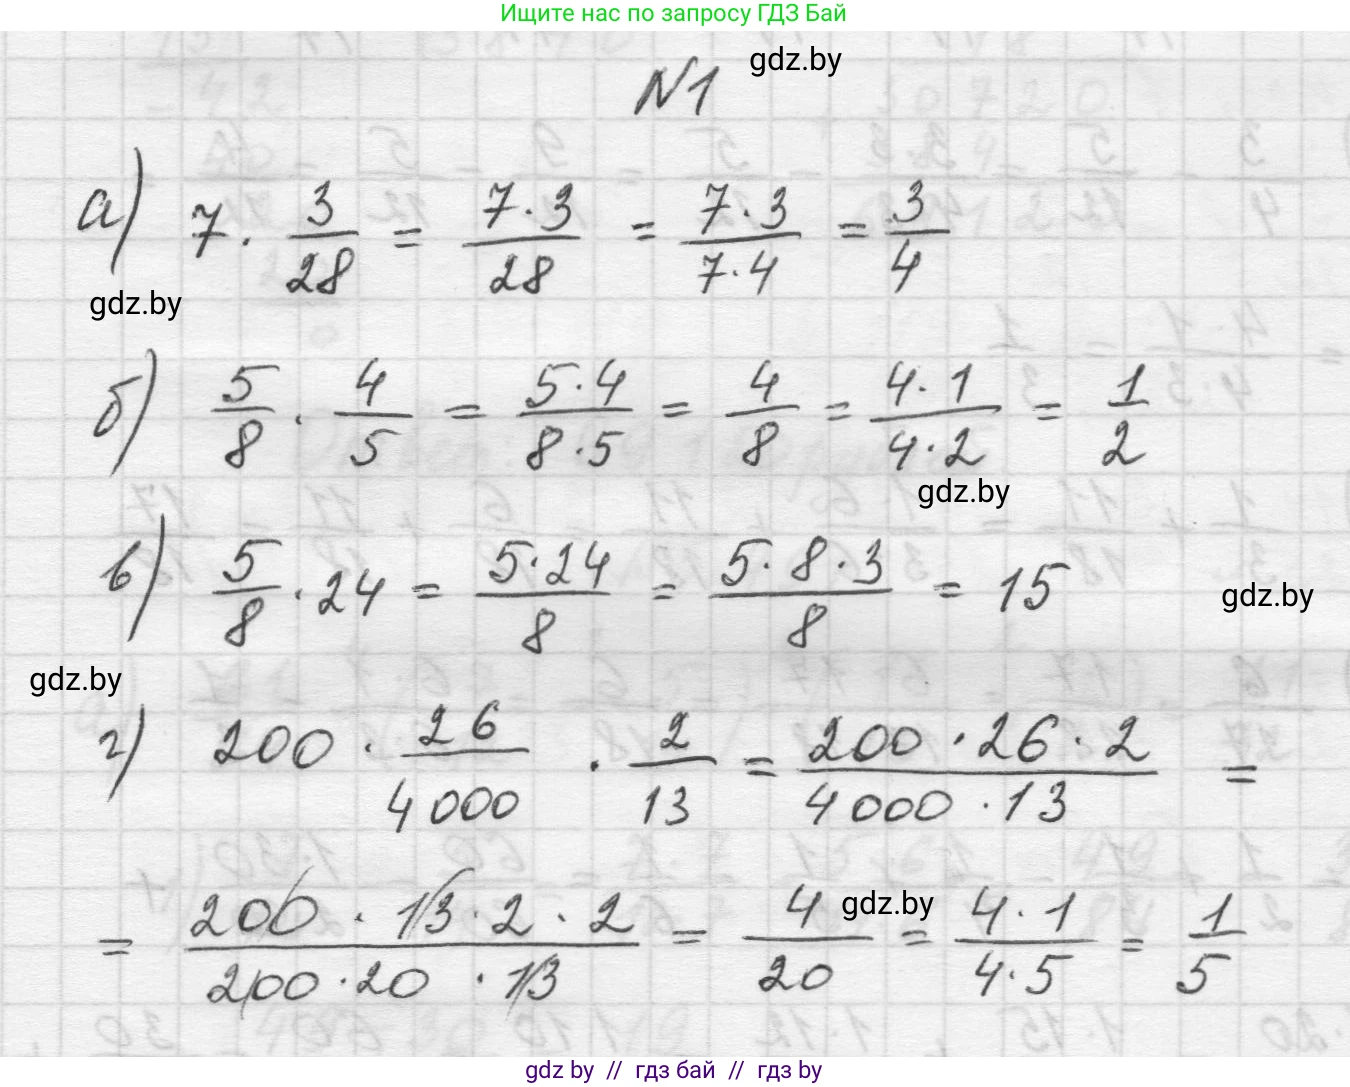 Ищите нас по запросу ГДЗ Бай
N1
gdz.by
а) 7 · 3/28 = 7·3/28 = 7·3/7·4 = 3/4
gdz.by
б) 5/8 · 4/5 = 5·4/8·5 = 4/8 = 4·1/4·2 = 1/2
gdz.by
в) 5/8 · 24 = 5·24/8 = 5·8·3/8 = 15
gdz.by
gdz.by
г) 200 · 26/4000 · 2/13 = 200·26·2/4000·13 =
= 200·13·2·2/200·20·13 = 4/20 = 4·1/4·5 = 1/5
gdz.by
gdz by // гдз бай // гдз by